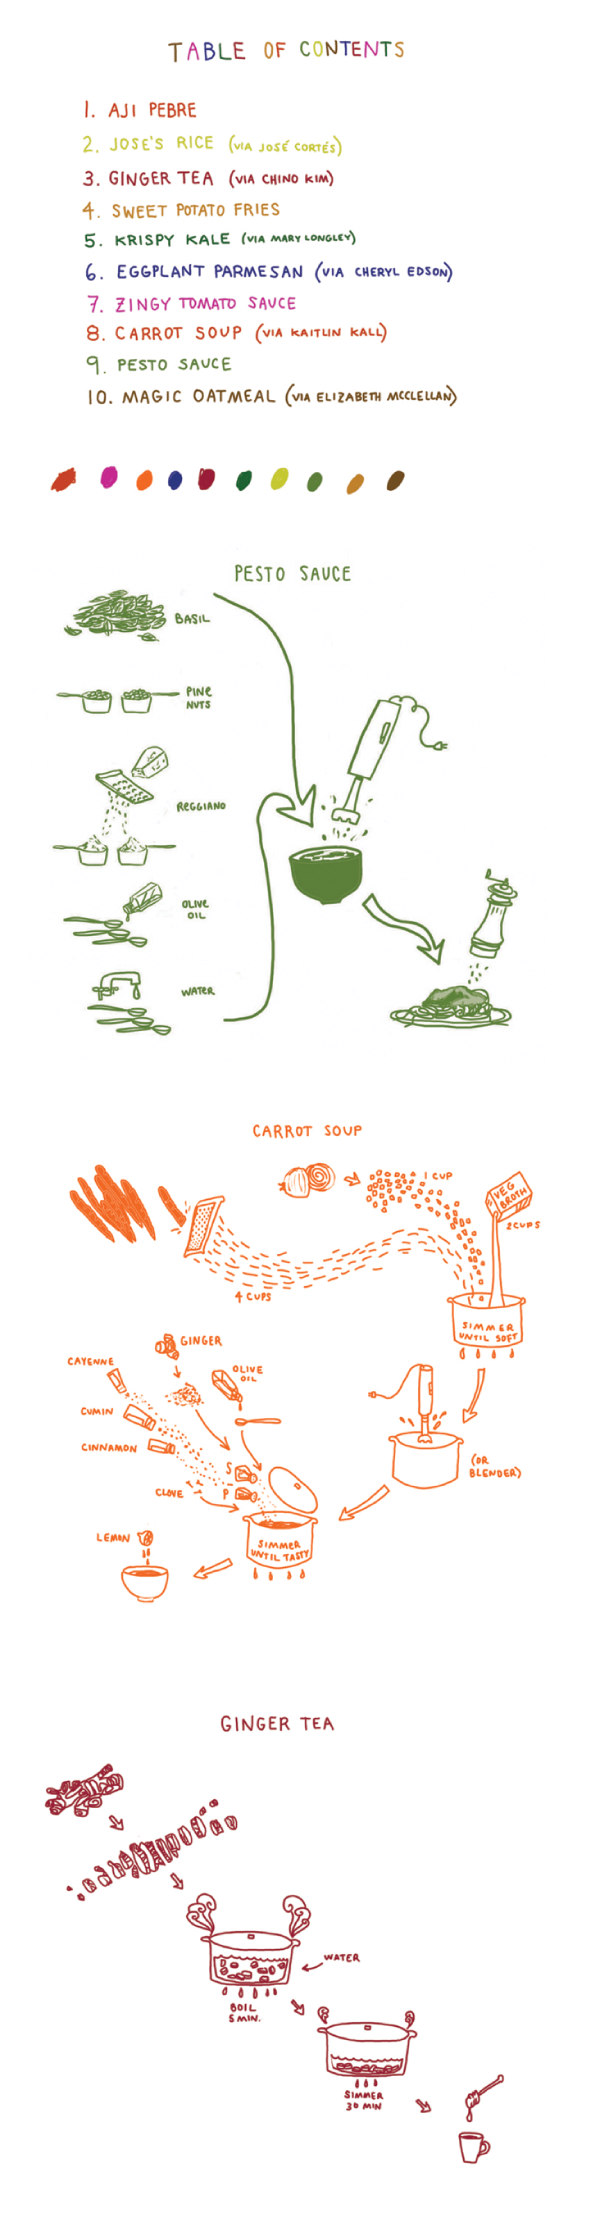 TABLE OF CONTENTS
1. AJI PEBRE
2. JOSE'S RICE (VIA JOSÉ CORTÉS)
3. GINGER TEA (VIA CHINO KIM)
4. SWEET POTATO FRIES
5. KRISPY KALE (VIA MARY LONGLEY)
6. EGGPLANT PARMESAN (VIA CHERYL EDSON)
7. ZINGY TOMATO SAUCE
8. CARROT SOUP (VIA KAITLIN KALL)
9. PESTO SAUCE
10. MAGIC OATMEAL (VIA ELIZABETH MCCLELLAN)
PESTO SAUCE
BASIL
PINE
NUTS
REGGIANO
OLIVE
OIL
WATER
CARROT SOUP
1 CUP
VEG
BROTH
2 CUPS
4 CUPS
SIMMER
UNTIL SOFT
GINGER
CAYENNE
OLIVE
OIL
CUMIN
CINNAMON
S
(OR
BLENDER)
CLOVE
P
LEMON
SIMMER
UNTIL TASTY
GINGER TEA
WATER
BOIL
5 MIN.
SIMMER
30 MIN